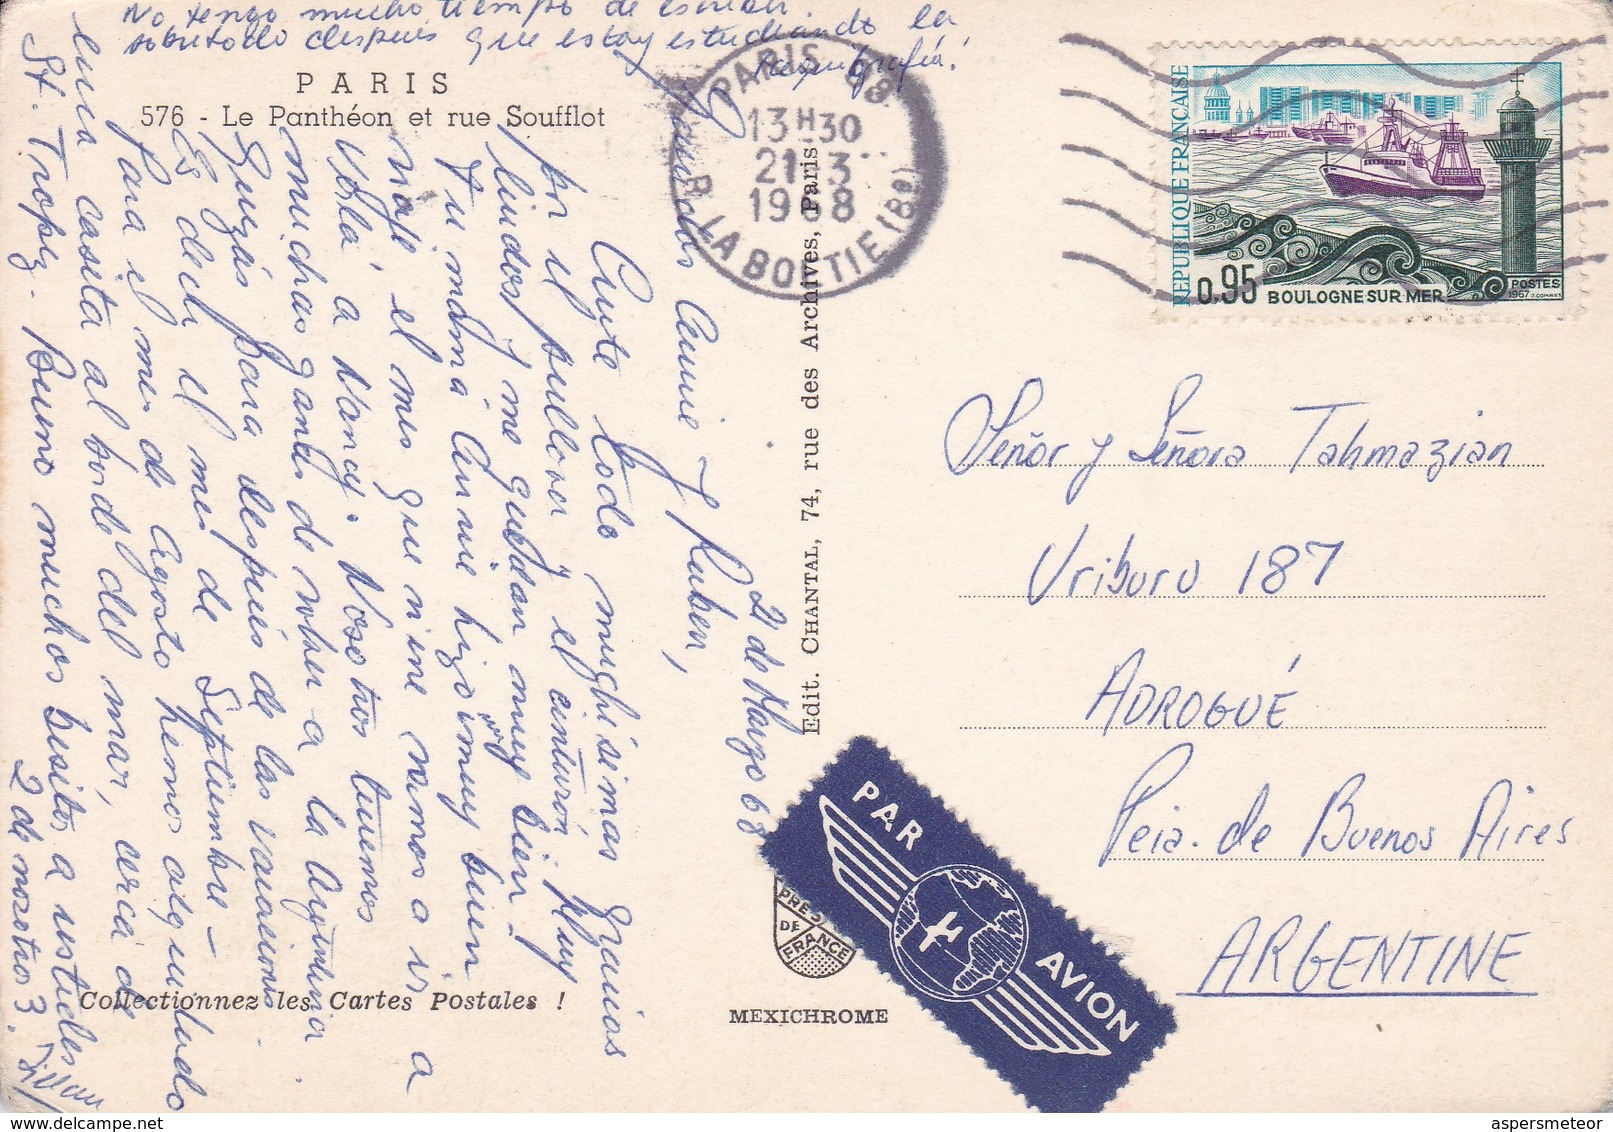 No tengo mucho tiempo de escribir
sobretodo después que estoy estudiando la
taquigrafía!
PARIS
576 - Le Panthéon et rue Soufflot
PARIS 8
13H30
21-3
1968
R. LA BOETIE (8e)
REPUBLIQUE FRANÇAISE
0,95 BOULOGNE SUR MER
POSTES
1967 J.COMBET
2 de Marzo 68
Queridos Annie y Ruben,
Ante todo muchísimas gracias
por el pullover y el cinturón. Muy
lindos y me quedan muy bien!
Tu mamá Annie hizo muy buen
viaje el mes que viene vamos a ir a
a Nancy. Nosotros tenemos
muchas ganas de volver a la Argentina
Quizás para después de las vacaciones
Es decir el mes de Septiembre -
Para el mes de Agosto hemos alquilado
una casita al borde del mar, cerca de
St. Tropez. Bueno muchos besitos a ustedes
2 de nosotros 3.
Edit. CHANTAL, 74, rue des Archives, Paris
Señor y Señora Tahmazian
Uriburu 187
ADROGUÉ
Pcia. de Buenos Aires
ARGENTINE
PAR AVION
PRES DE FRANCE
MEXICHROME
Collectionnez les Cartes Postales !
aspersmeteor